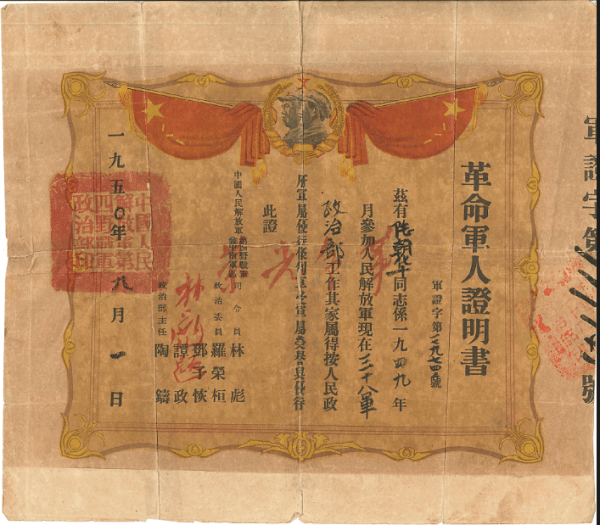 革命軍人證明書
軍證字第二九七四號
茲有
同志係一九四九年
月參加人民解放軍現在三十八軍
政治部工作其家屬得按人民政
府軍屬優行條例享受軍屬榮譽與優待
此證
中國人民解放軍第四野戰軍
司令員 林彪
政治委員 羅榮桓
鄧子恢
譚政
政治部主任 陶鑄
一九五〇年九月一日
中國人民解放軍第四野戰軍政治部印
光荣
軍證字第
號